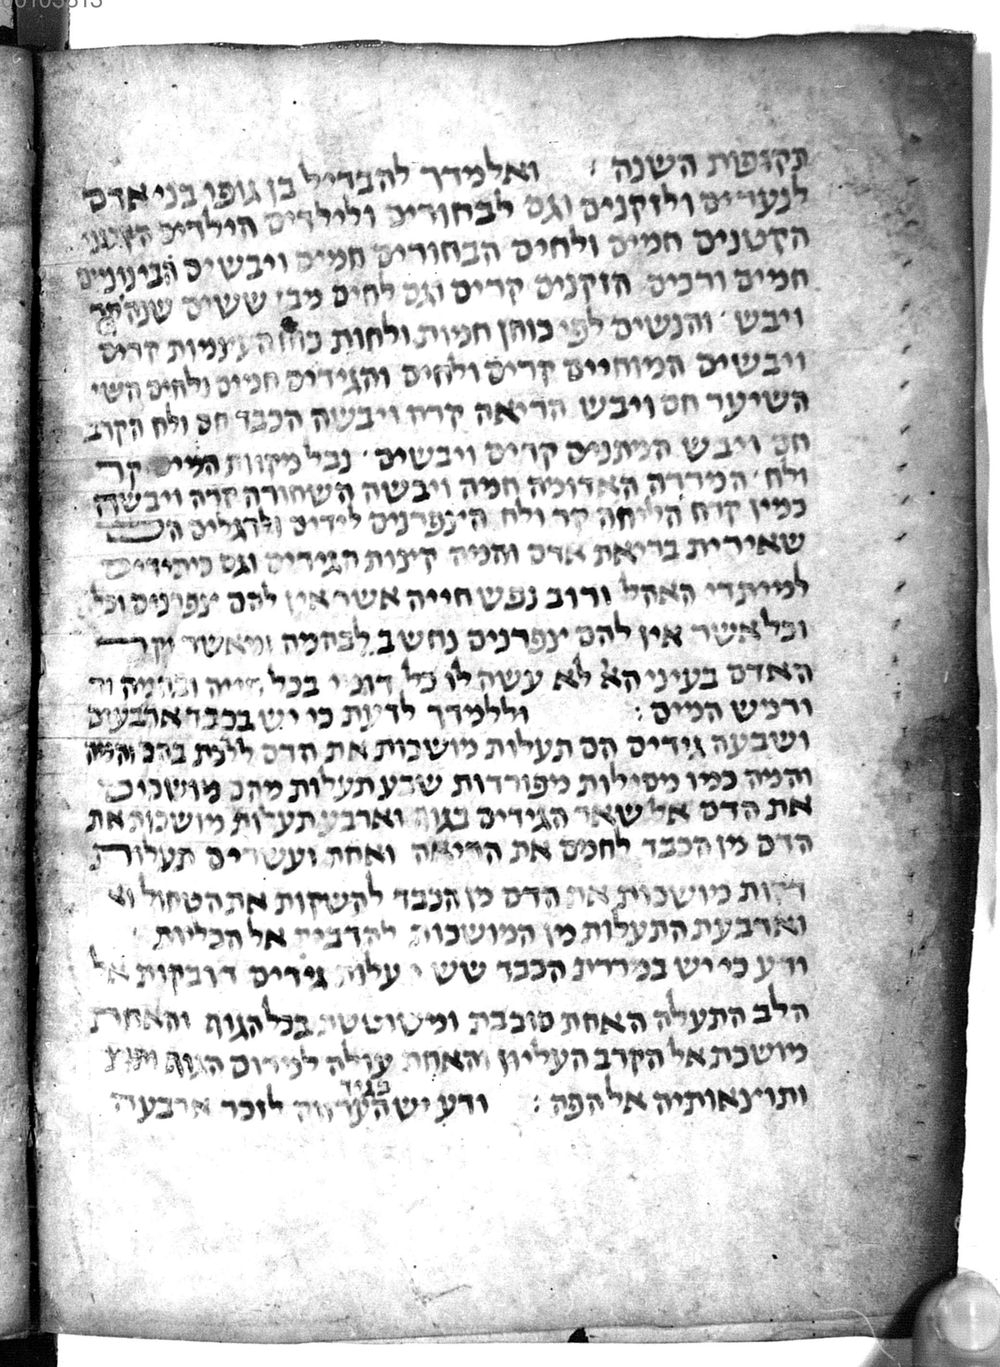 00105313
תקופות השנה : ואלמדך להבדיל בן גופו בני אדם
לנערים ולזקנים וגם לבחורים ולילדים הילדים הקטני
הקטנים חמים ולחים הבחורים חמים ויבשים הבינונים
חמים ורכים הזקנים קרים וגם לחים מבן ששים שנה קר
ויבש ׳ והנשים לפי כוחן חמות ולחות כוח העצמות קרים
ויבשים המוחיים קרים ולחים והגידים חמים ולחים השי
השיער חם ויבש הריאה קרה ויבשה הכבד חם ולח הקרב
חם ויבש המתנים קרים ויבשים ׳ נבל מקוות המים קר
ולח ׳ המררה האדומה חמה ויבשה השחורה קרה ויבשה
כמין קרח הליחה קר ולח הצפרנים לידים ולרגלים ה
שאירית בריאת אדם והמה קיצות הגידים וגם כיתידים
למיתרי האהל ורוב נפש חייה אשר אין להם צפרנים וכל
וכל אשר אין להם צפרנים נחשב לבהמה ומאשר יקר
האדם בעיני הא׳ לא עשה לו כל דוגמי בכל חייה ובהמה
ורמש המים : וללמדך לדעת כי יש בכבד ארבעים
ושבעה גידים הם תעלות מושכות את הדם ללכת בהם והמה
והמה כמו מסילות מפורדות שבע תעלות מהם מושכים
את הדם אל שאר הגידים בגוף וארבע תעלות מושכות את
הדם מן הכבד לחמם את הריאה ואחת ועשרים תעלות
דקות מושכות את הדם מן הכבד להשקות את הטחול וא
וארבעת התעלות מן המושכות להדבית אל הכליות
ודע כי יש במררת הכבד שש תעלות גידים דובקות אל
הלב התעלה האחת סובבת ומשוטטת בכל הגוף והאחת
מושכת אל הקרב העליון והאחת עולה למרום הגוף
ותוצאותיה אל הפה : ודע יש בגיד הערוה לזכר ארבעה